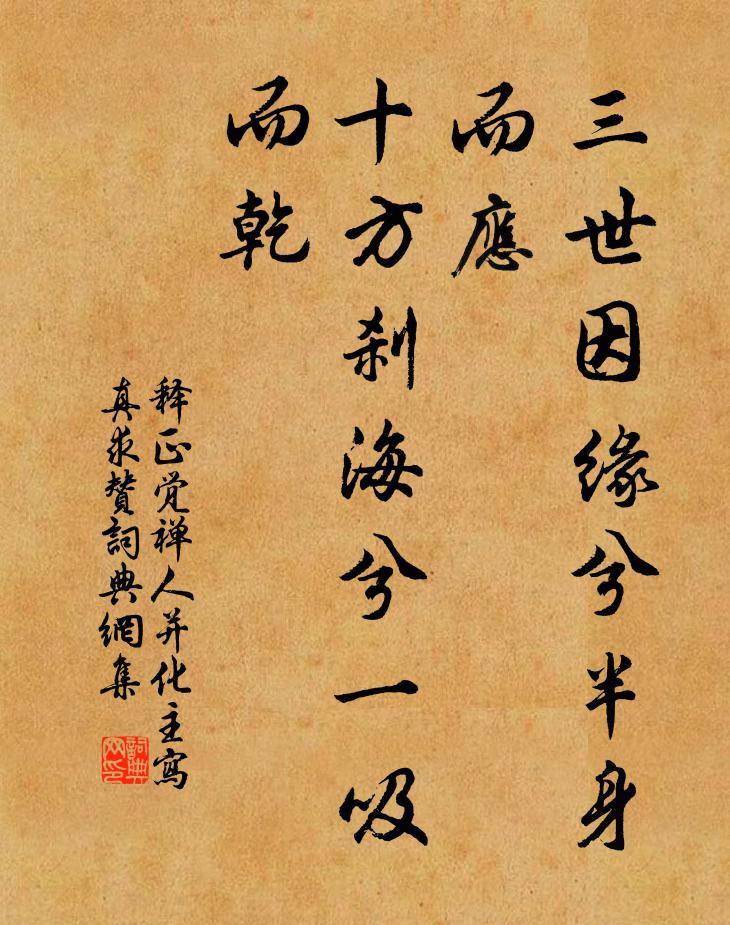 三世因缘兮半身
而應
十方刹海兮一吸
而乾
释正觉禅人并化主寫
真求赞詞典網集
詞典
网印